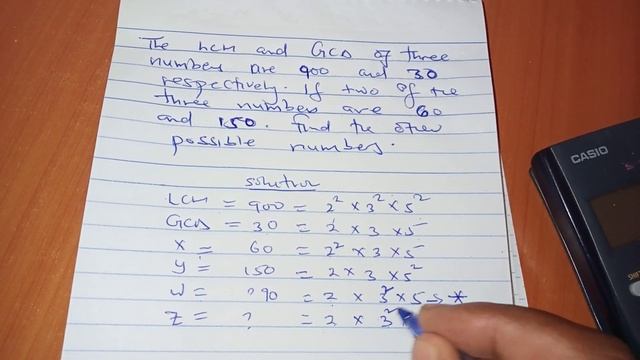 The LCM and GCD of three
numbers are 900 and 30
respectively. If two of the
three numbers are 60
and 150. Find the other
possible numbers.
solution
LCM = 900 = 2² × 3² × 5²
GCD = 30 = 2 × 3 × 5
X = 60 = 2² × 3 × 5
y = 150 = 2 × 3 × 5²
W = ? 90 = 2 × 3² × 5 → *
Z = ? = 2 × 3²
CASIO